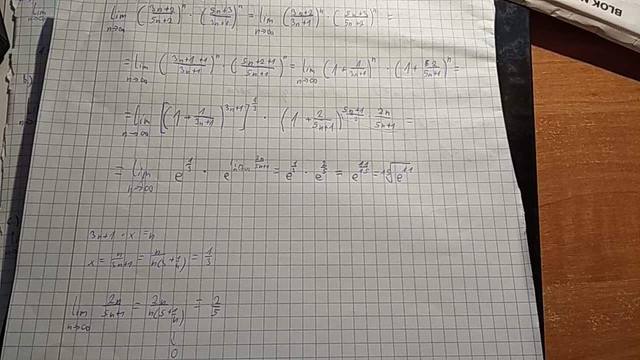 lim n→∞ (3n+2/5n+2)^n · (5n+3/3n+1)^n = lim n→∞ (3n+2/3n+1)^n · (5n+3/5n+1)^n =
= lim n→∞ (3n+1+1/3n+1)^n · (5n+2+1/5n+1)^n = lim n→∞ (1+1/3n+1)^n · (1+2/5n+1)^n =
b)
= lim n→∞ [(1+1/3n+1)^3n+1]^1/3 · (1+2/5n+1)^5n+1/2 · 2n/5n+1 =
= lim n→∞ e^1/3 · e^lim n→∞ 2n/5n+1 = e^1/3 · e^2/5 = e^11/15 = 15√e^11
3n+1 · x = n
x = n/3n+1 = n/n(3+1/n) = 1/3
lim n→∞ 2n/5n+1 = 2n/n(5+1/n) = 2/5
0
BLOK